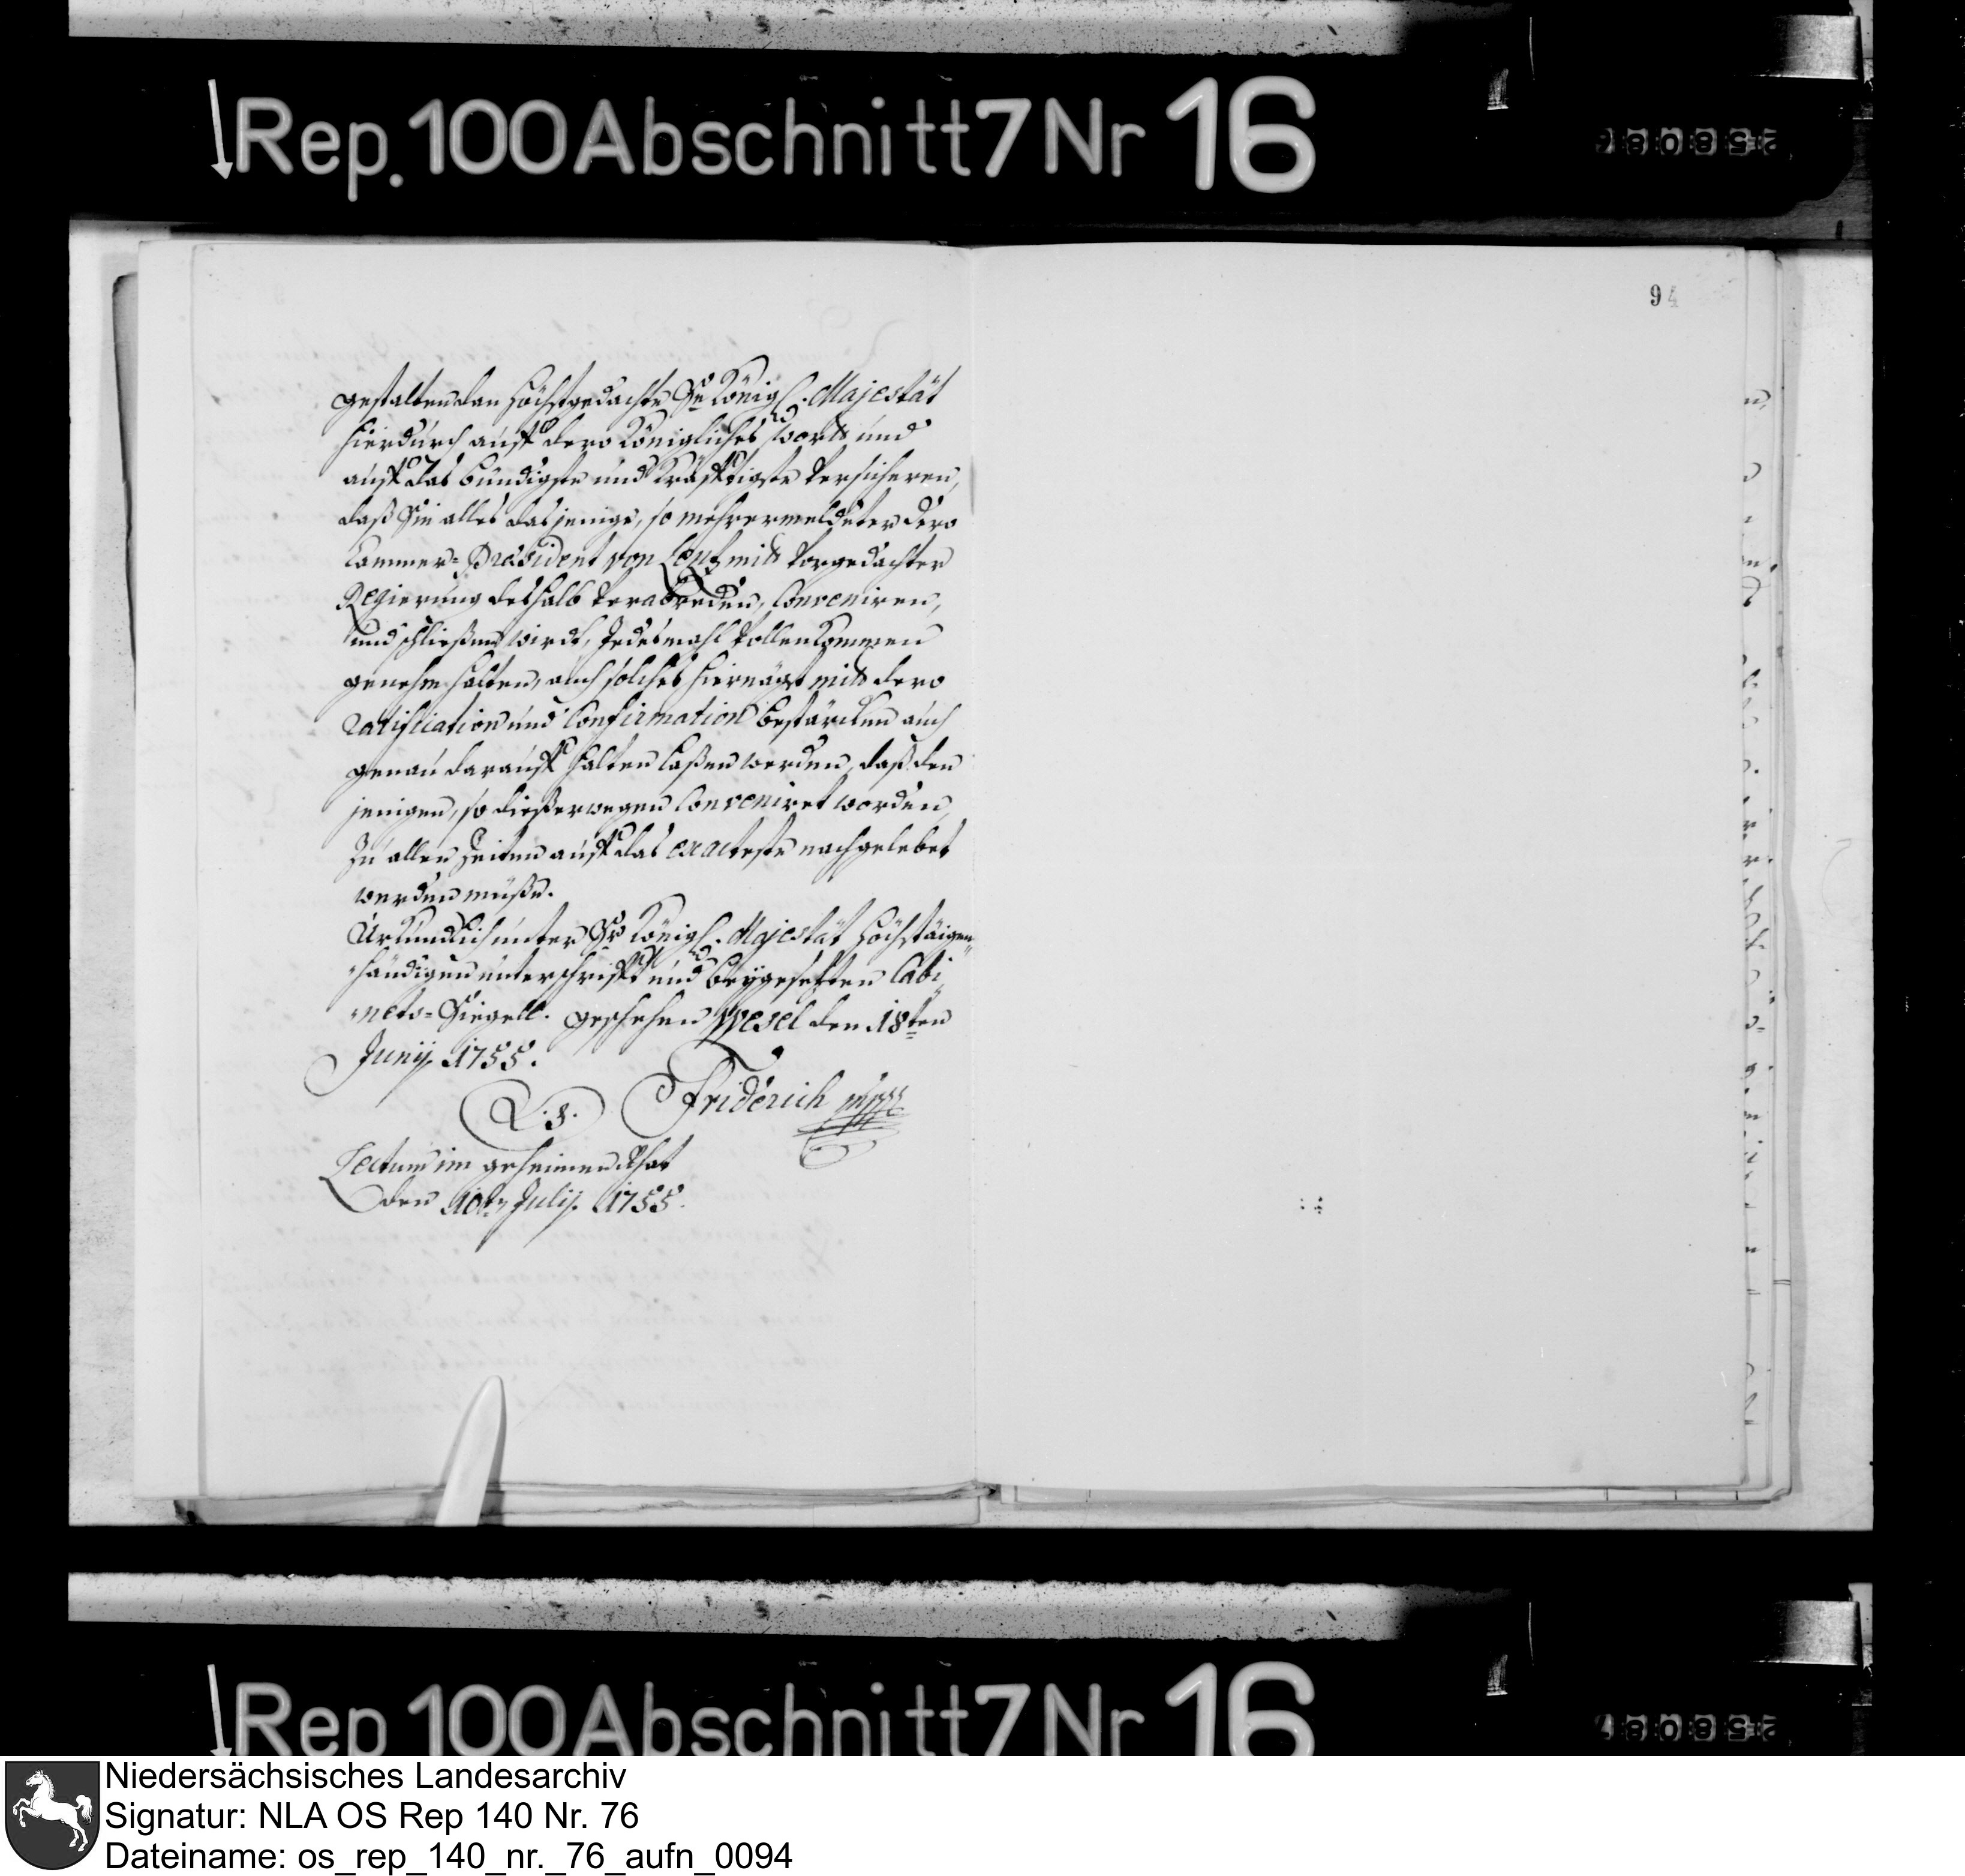 Rep. 100 Abschnitt 7 Nr 16
94
gestalten dan Höchstgedachte Se Königl. Majestät
hierdurch auff dero Königliches Wort und
auff das bündigste und Kräfftigste Versicheren,
daß Sie alles das jenige, so mehrermeldeter dero
Cammer-Præsident von Lentz mit Vorgedachter
Regierung deshalb Verabreden, Conveniren,
und schließen wird, Jedesmahl Vollenkommen
genehm halten, auch solches hiernägst mit dero
ratification und Confirmation bestärcken auch
genau darauff halten laßen werden, daß dem
jenigen, so dießerwegen Conveniret worden,
Zu allen Zeiten auff das exacteste nachgelebet
werden müße.
Urkundlich unter Sr Königl. Majestät Höchstäigen-
händigen unterschrifft und beygesetzten Cabi-
nets-Siegell. geschehen Wesel den 18ten
Junij. 1755.
L. S. Friderich
Lectum im geheimen Rhat
den 10ten Julij. 1755.
Rep 100 Abschnitt 7 Nr 16
Niedersächsisches Landesarchiv
Signatur: NLA OS Rep 140 Nr. 76
Dateiname: os_rep_140_nr._76_aufn_0094